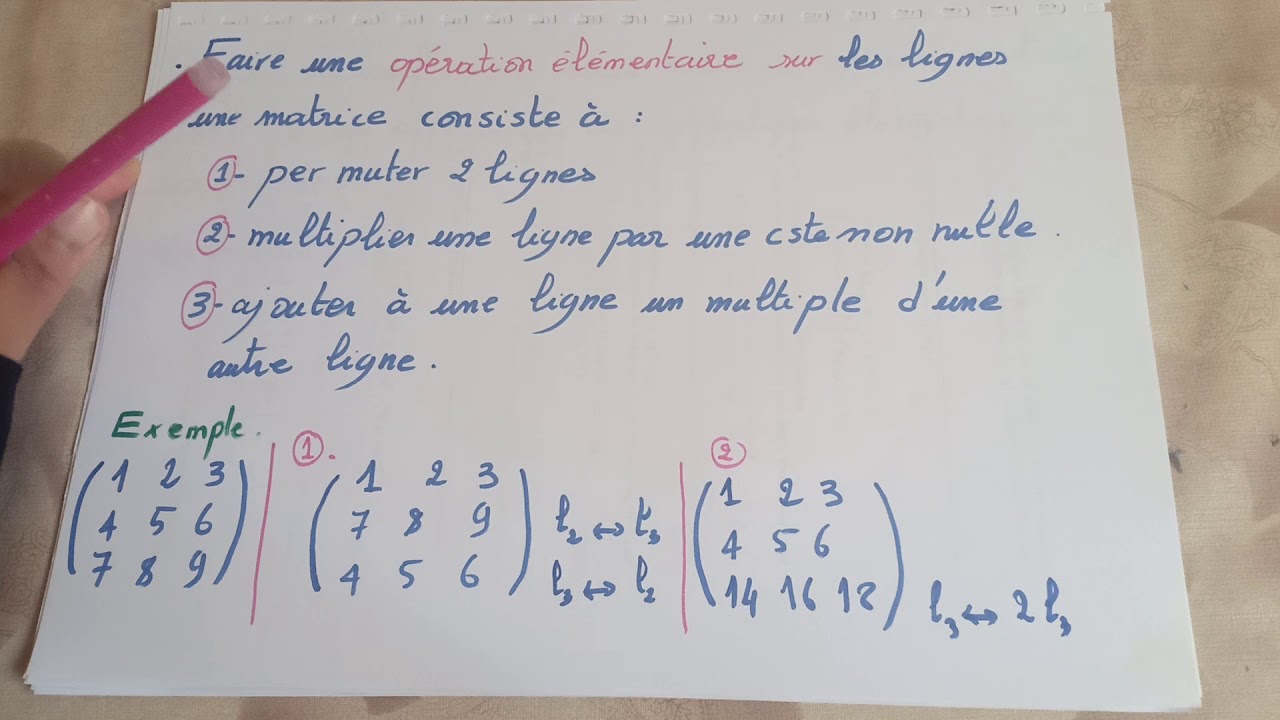 . Faire une opération élémentaire sur les lignes
une matrice consiste à :
①- per muter 2 lignes
②- multiplier une ligne par une cste non nulle .
③- ajouter à une ligne un multiple d'une
autre ligne .
Exemple.
1 2 3
4 5 6
7 8 9
① .
1 2 3
7 8 9 l₂ ↔ l₃
4 5 6 l₃ ↔ l₂
②
1 2 3
4 5 6
14 16 18 l₃ ↔ 2 l₃